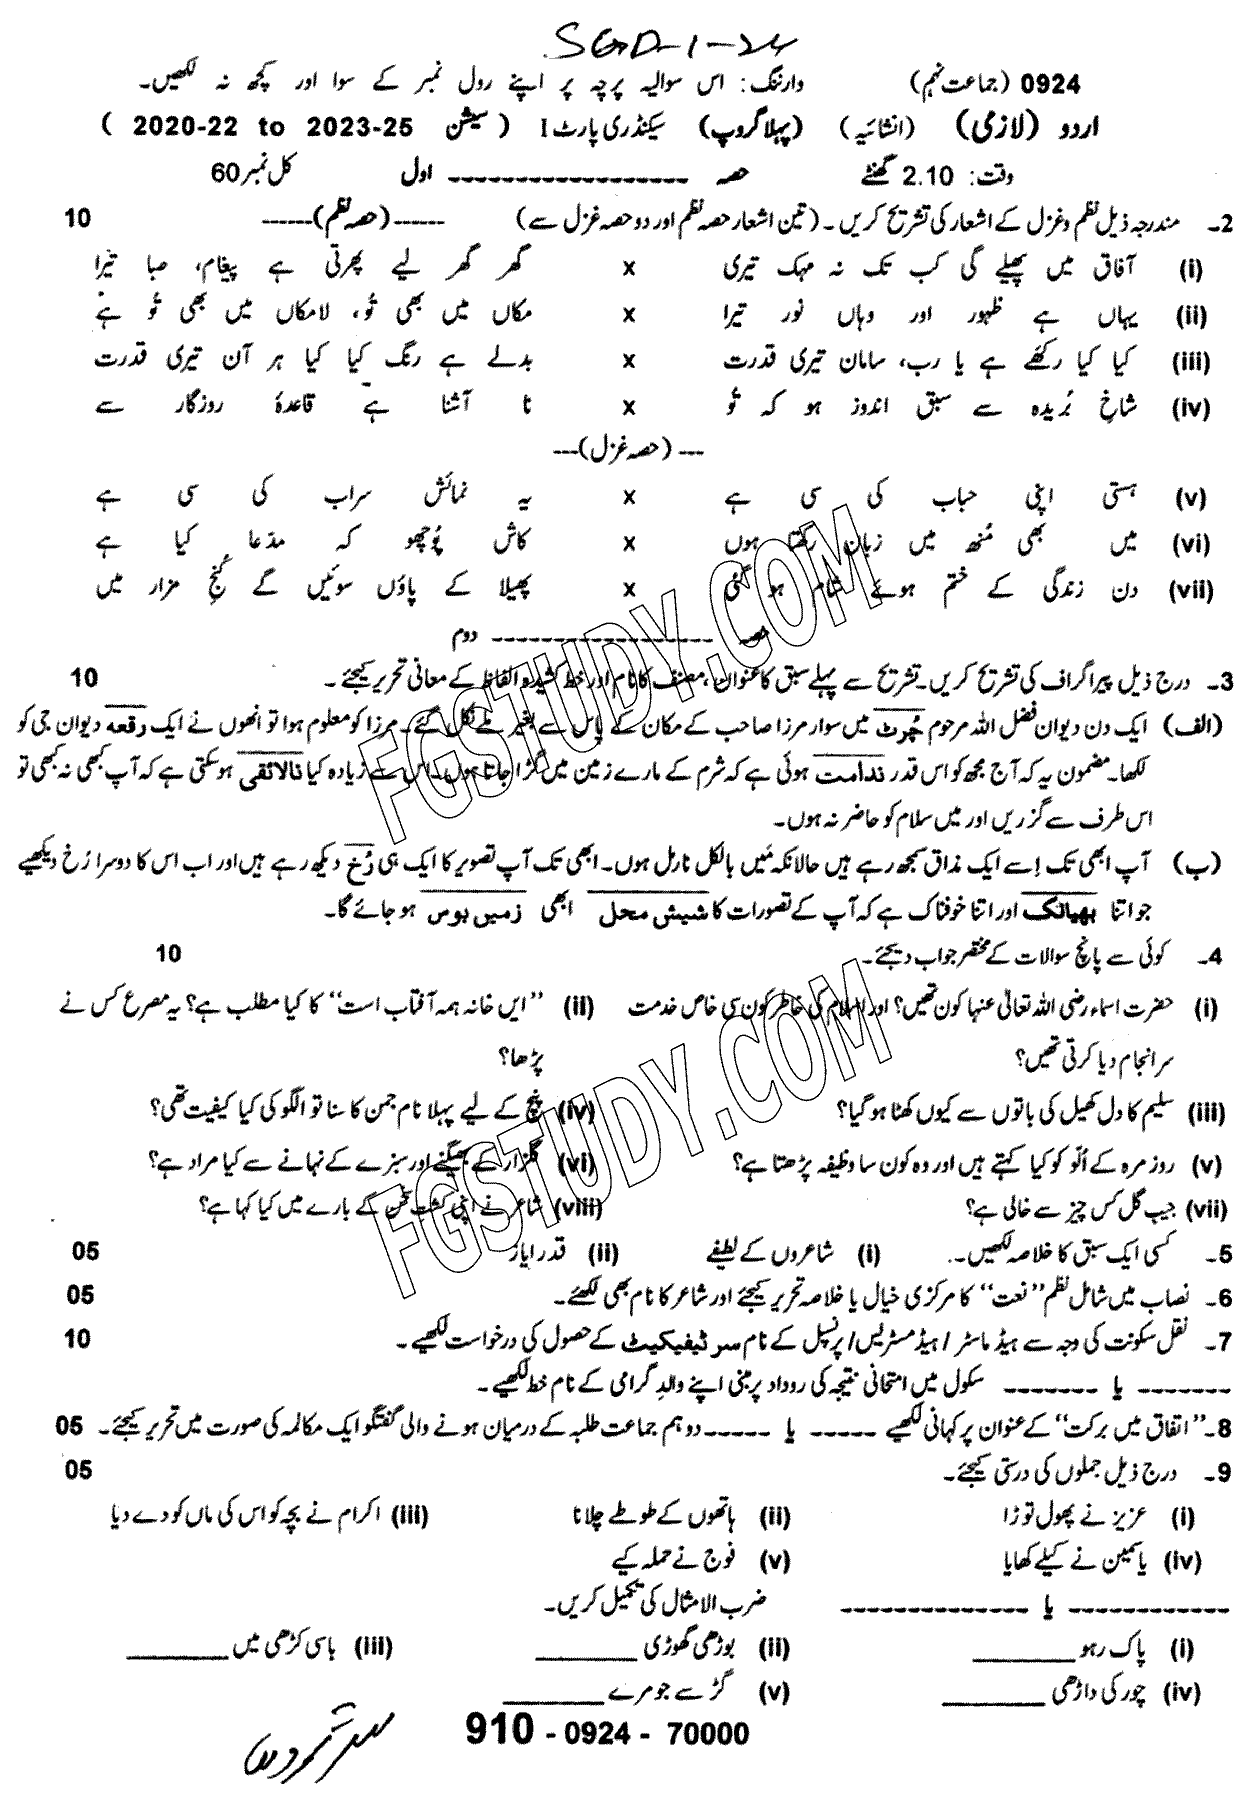 SGD-1-24
0924 (جماعت نہم) وارننگ: اس سوالیہ پرچہ پر اپنے رول نمبر کے سوا اور کچھ نہ لکھیں۔
اردو (لازمی) (انشائیہ) (پہلا گروپ) سیکنڈری پارٹ I ( سیشن 2020-22 to 2023-25 )
وقت: 2.10 گھنٹے حصہ ------------------ اول کل نمبر 60
2۔ مندرجہ ذیل نظم و غزل کے اشعار کی تشریح کریں۔ (تین اشعار حصہ نظم اور دو حصہ غزل سے) -----(حصہ نظم)----- 10
(i) آفاق میں پھیلے گی کب تک نہ مہک تیری x گھر گھر لیے پھرتی ہے پیغام، صبا تیرا
(ii) یہاں ہے ظہور اور وہاں نور تیرا x مکاں میں بھی تُو، لامکاں میں بھی تُو ہے
(iii) کیا کیا رکھے ہے یا رب، سامان تیری قدرت x بدلے ہے رنگ کیا کیا ہر آن تیری قدرت
(iv) شاخِ بُریدہ سے سبق اندوز ہو کہ تُو x نا آشنا ہے قاعدۂ روزگار سے
---(حصہ غزل)---
(v) ہستی اپنی حباب کی سی ہے x یہ نمائش سراب کی سی ہے
(vi) میں بھی مُنھ میں زبان رکھتا ہوں x کاش پُوچھو کہ مدّعا کیا ہے
(vii) دن زندگی کے ختم ہوئے شام ہو گئی x پھیلا کے پاؤں سوئیں گے کُنجِ مزار میں
حصہ ------------------ دوم
3۔ درج ذیل پیراگراف کی تشریح کریں۔ تشریح سے پہلے سبق کا عنوان، مصنف کا نام اور خط کشیدہ الفاظ کے معانی تحریر کیجئے۔ 10
(الف) ایک دن دیوان فضل اللہ مرحوم چُرٹ میں سوار مرزا صاحب کے مکان کے پاس سے بغیر ملے نکل گئے۔ مرزا کو معلوم ہوا تو انھوں نے ایک رقعہ دیوان جی کو
لکھا۔ مضمون یہ کہ آج مجھ کو اس قدر ندامت ہوئی ہے کہ شرم کے مارے زمین میں گڑا جاتا ہوں۔ اس سے زیادہ کیا نالائقی ہوسکتی ہے کہ آپ کبھی نہ کبھی تو
اس طرف سے گزریں اور میں سلام کو حاضر نہ ہوں۔
(ب) آپ ابھی تک اِسے ایک مذاق سمجھ رہے ہیں حالانکہ مَیں بالکل نارمل ہوں۔ ابھی تک آپ تصویر کا ایک ہی رُخ دیکھ رہے ہیں اور اب اس کا دوسرا رُخ دیکھیے
جو اتنا بھیانک اور اتنا خوفناک ہے کہ آپ کے تصورات کا شیش محل ابھی زمیں بوس ہو جائے گا۔
4۔ کوئی سے پانچ سوالات کے مختصر جواب دیجئے۔ 10
(i) حضرت اسماء رضی اللہ تعالیٰ عنہا کون تھیں؟ اور اسلام کی خاطر کون سی خاص خدمت (ii) "ایں خانہ ہمہ آفتاب است" کا کیا مطلب ہے؟ یہ مصرع کس نے
سرانجام دیا کرتی تھیں؟ پڑھا؟
(iii) سلیم کا دل کھیل کی باتوں سے کیوں کھٹا ہو گیا؟ (iv) پنچ کے لیے پہلا نام جمن کا سنا تو الگو کی کیا کیفیت تھی؟
(v) روز مرہ کے اُلّو کو کیا کہتے ہیں اور وہ کون سا وظیفہ پڑھتا ہے؟ (vi) گلزار کے بھیگنے اور سبزے کے نہانے سے کیا مراد ہے؟
(vii) جیب گل کس چیز سے خالی ہے؟ (viii) شاعر نے اپنی کشت سخن کے بارے میں کیا کہا ہے؟
5۔ کسی ایک سبق کا خلاصہ لکھیں۔ (i) شاعروں کے لطیفے (ii) قدر ایاز 05
6۔ نصاب میں شامل نظم "نعت" کا مرکزی خیال یا خلاصہ تحریر کیجئے اور شاعر کا نام بھی لکھئے۔ 05
7۔ نقل سکونت کی وجہ سے ہیڈ ماسٹر / ہیڈ مسٹریس / پرنسپل کے نام سرٹیفیکیٹ کے حصول کی درخواست لکھیے۔ 10
------- یا ------- سکول میں امتحانی نتیجہ کی روداد پر مبنی اپنے والدِ گرامی کے نام خط لکھیے۔
8۔ "اتفاق میں برکت" کے عنوان پر کہانی لکھیے ----- یا ----- دو ہم جماعت طلبہ کے درمیان ہونے والی گفتگو ایک مکالمہ کی صورت میں تحریر کیجئے۔ 05
9۔ درج ذیل جملوں کی درستی کیجئے۔ 05
(i) عزیز نے پھول توڑا (ii) ہاتھوں کے طوطے چلانا (iii) اکرام نے بچہ کو اس کی ماں کو دے دیا
(iv) یاسمین نے کیلے کھایا (v) فوج نے حملہ کیے
------------ یا -------------- ضرب الامثال کی تکمیل کریں۔
(i) پاک رہو ________ (ii) بوڑھی گھوڑی ________ (iii) باسی کڑھی میں ________
(iv) چور کی داڑھی ________ (v) گڑ سے جو مرے ________
910 - 0924 - 70000
FGSTUDY.COM
FGSTUDY.COM